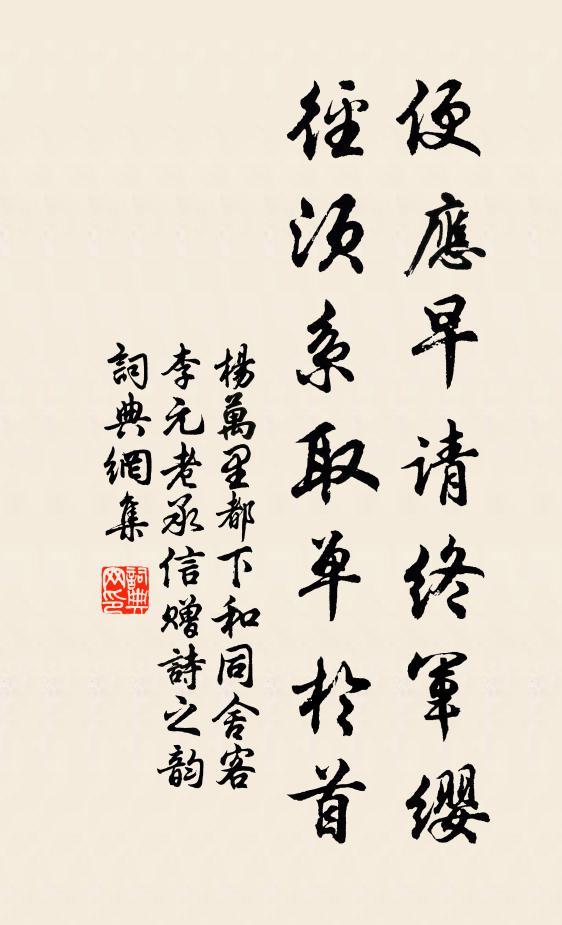 便應早请终軍缨
徑须系取单於首
楊萬里都下和同舍客
李元老承信赠詩之韵
詞典網集
詞典
网印